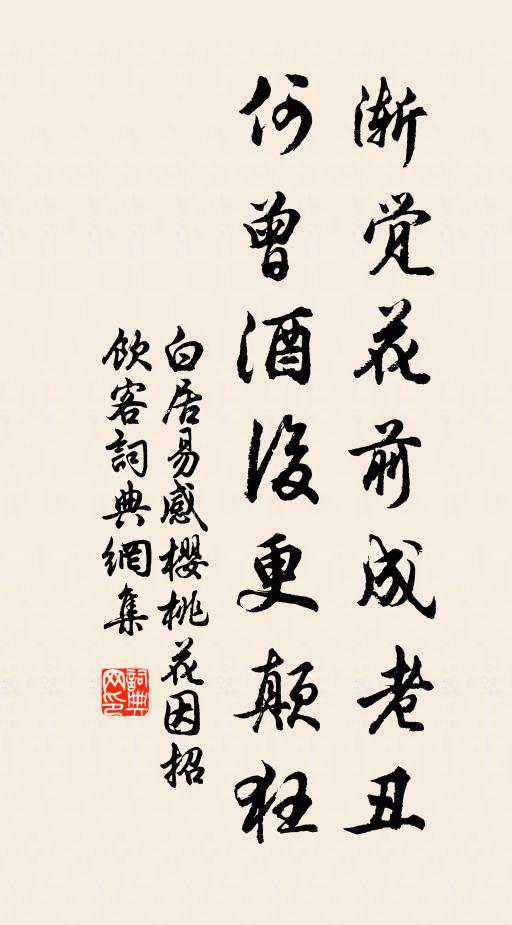 渐觉花前成老丑
何曾酒后更颠狂
白居易感櫻桃花因招
飲客詞典網集
詞典
网印